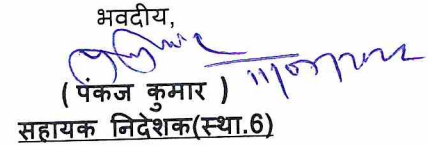 भवदीय,
( पंकज कुमार )
सहायक निदेशक(स्था.6)